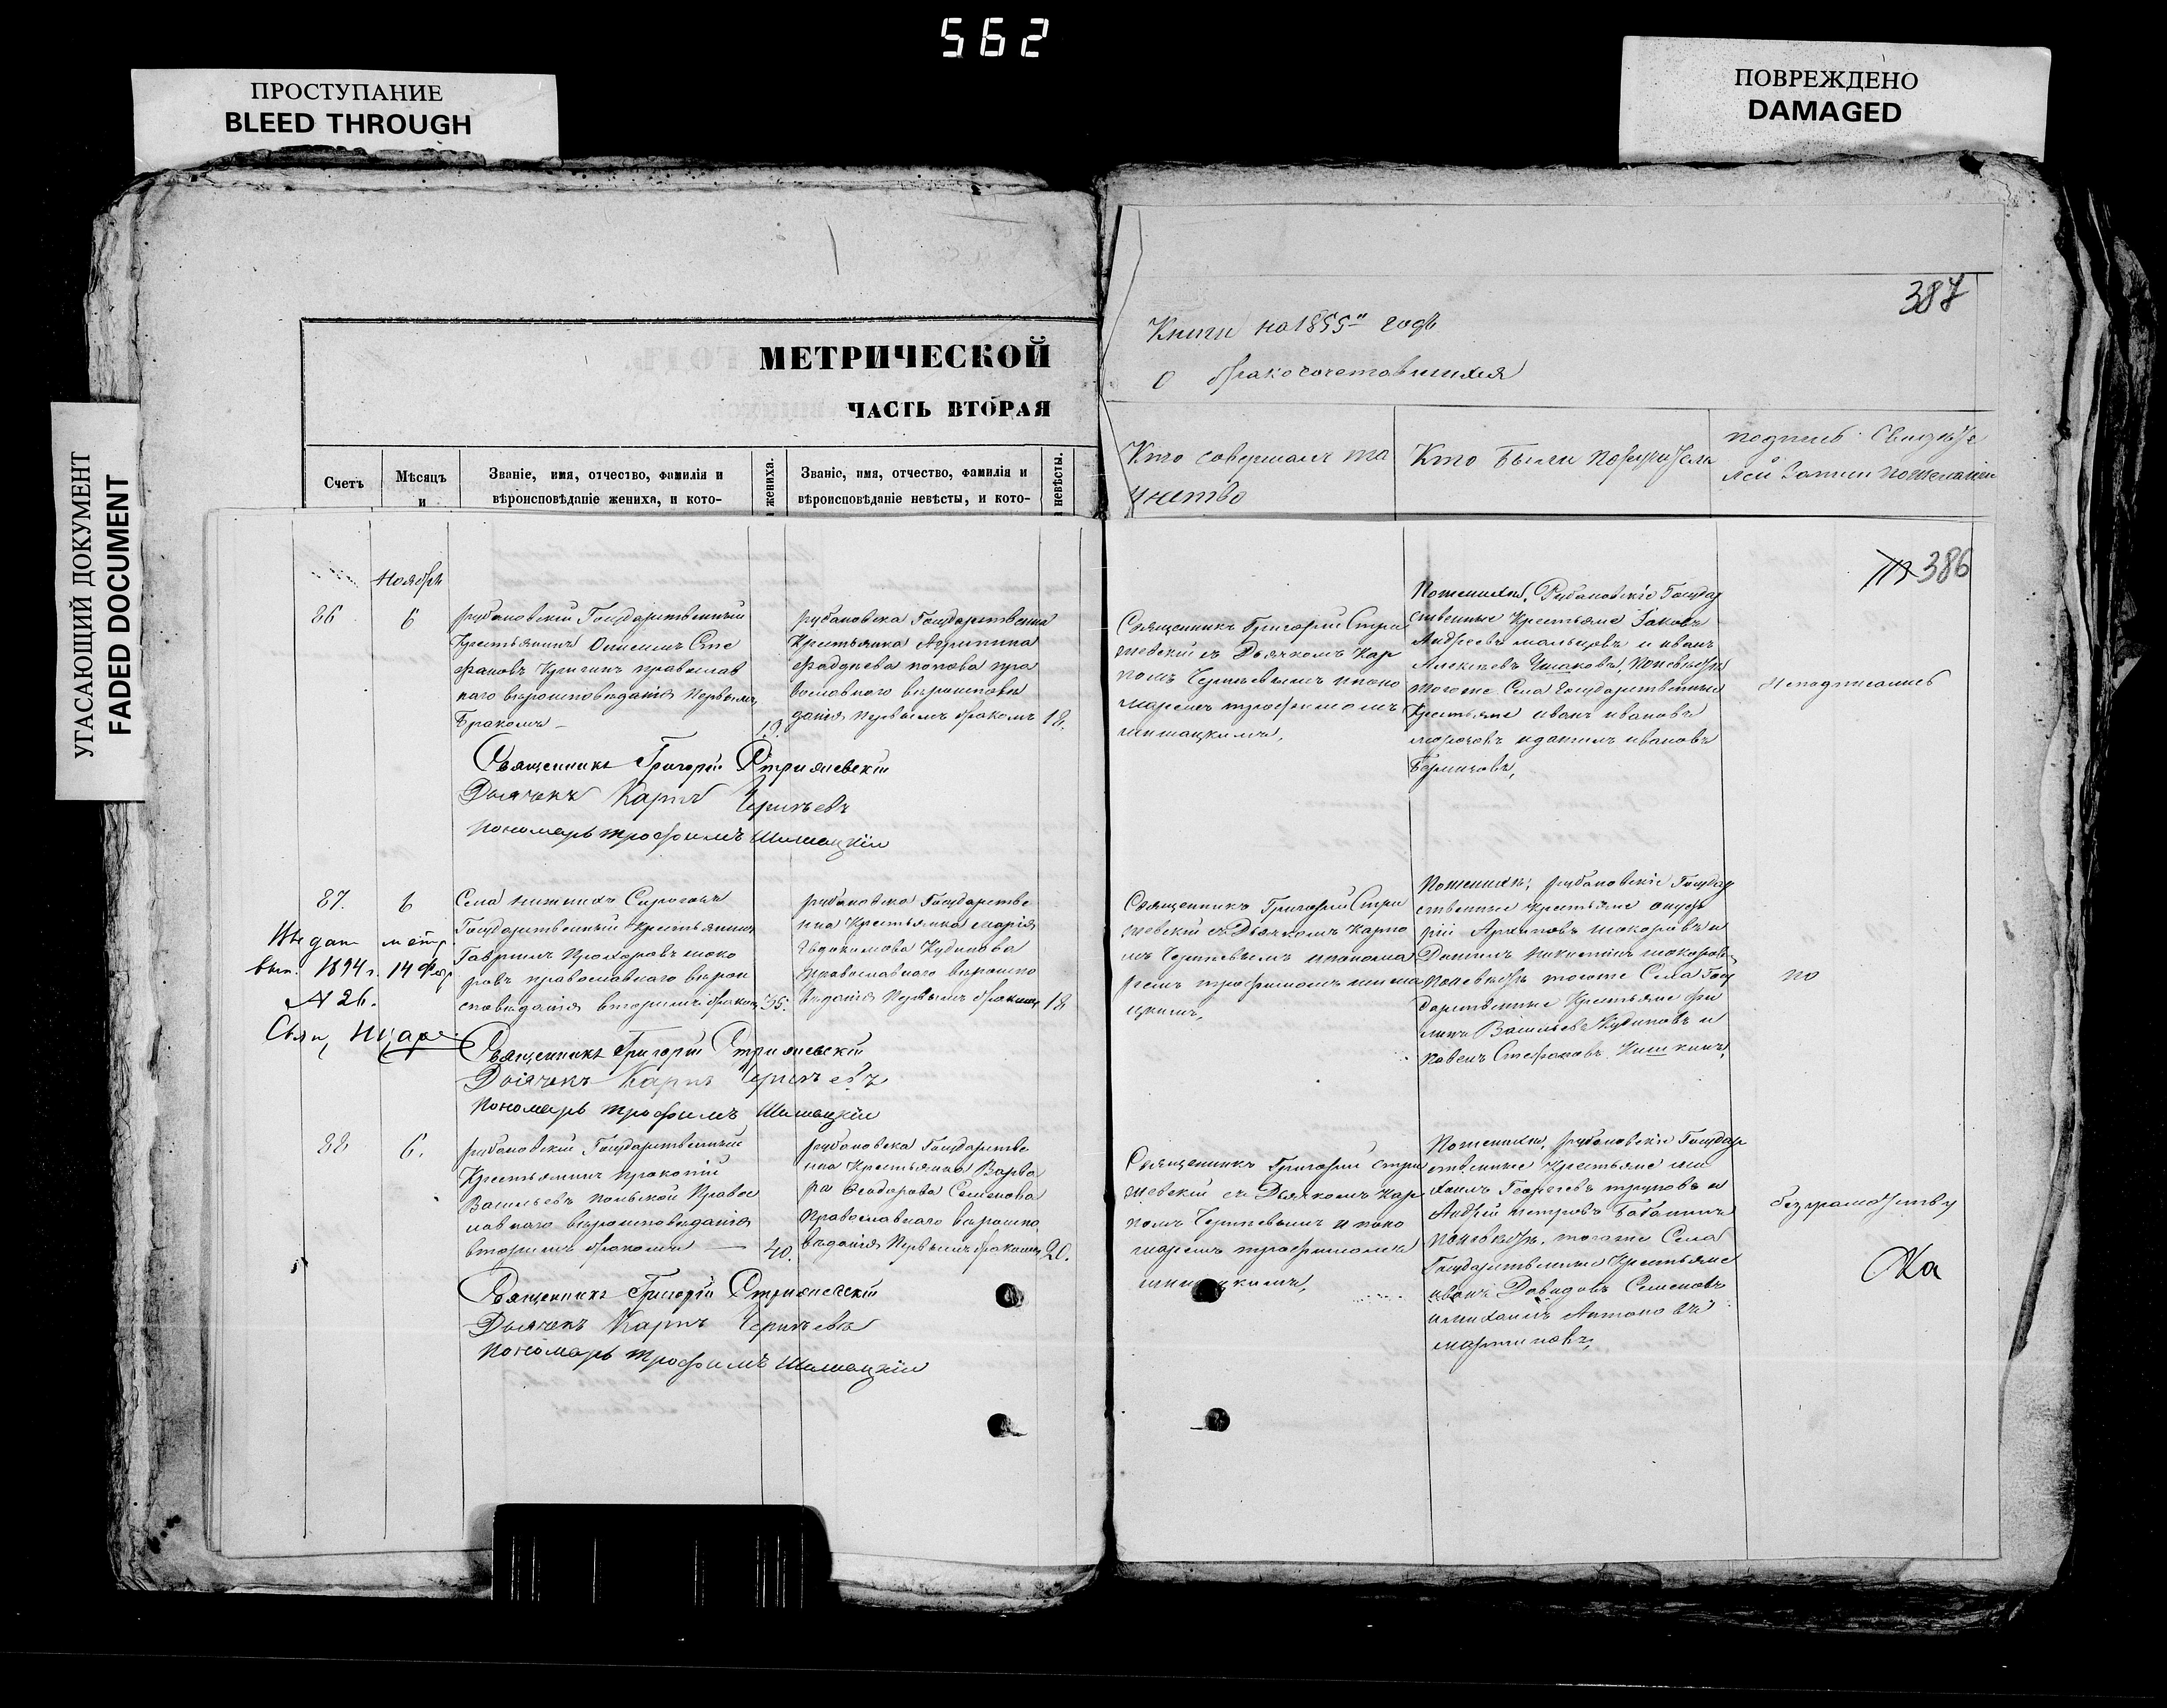 562
ПРОСТУПАНИЕ
BLEED THROUGH
ПОВРЕЖДЕНО
DAMAGED
УГАСАЮЩИЙ ДОКУМЕНТ
FADED DOCUMENT
МЕТРИЧЕСКОЙ
ЧАСТЬ ВТОРАЯ
Счетъ
Мѣсяцъ
и
Званіе, имя, отчество, фамилія и
вѣроисповѣданіе жениха, и кото-
жениха.
Званіе, имя, отчество, фамилія и
вѣроисповѣданіе невѣсты, и кото-
невѣсты.
387
Книги на 1855 годъ
о бракосочетавшихся
Кто совершалъ та
инство
Кто были поручители
подпись свидѣте
лей записи по желанію
386
Ноября
86
6
рубановскій Государственный
Крестьянинъ Онисимъ Сте
фановъ православ
наго вѣроисповѣданія первымъ
бракомъ
19.
рубановска Государственна
Крестьянка Агрипина
Фадѣева попова пра
вославнаго вѣроисповѣ
данія первымъ бракомъ
18.
Священникъ Григорій Стри
жевскій съ Дьячкомъ Кар
помъ и поно
маремъ трофимомъ
шишацкимъ,
По женихѣ, Рубановскіе Государ
ственные Крестьяне Іаковъ
Андреевъ мальцовъ и иванъ
Алексѣевъ Ушаковъ, По невѣстѣ
того же Села Государственные
Крестьяне иванъ ивановъ
морозовъ и данилъ ивановъ
Неподписались
Священникъ Григорій Стрижевскій
Дьячекъ Карпъ
Пономарь трофимъ Шишацкій
87.
6
Села нижнихъ Сирогозъ
Государственный крестьянинъ
Гавріилъ Прохоровъ моко
ровъ православнаго вѣрои
сповѣданія вторымъ бракомъ
35.
рубановска Государстве
нна Крестьянка Марія
Евдокимова Кудинова
Православнаго вѣроиспо
вѣданія Первымъ бракомъ
18
Священникъ Григорій Стри
жевскій съ Дьячкомъ Карпо
мъ и понома
ремъ трофимомъ шиша
цкимъ,
По женихѣ, рубановскіе Государ
ственные крестьяне
Архиповъ мокоровъ и
Данилъ никитинъ мокоровъ
По невѣстѣ того же Села Госу
дарственные Крестьяне фи
липъ Васильевъ Кудиновъ и
Павелъ Стефановъ Кишкинъ,
по
Выдан. метр.
вып. 1894 г. 14 Февр.
№ 26.
Свящ.
Священникъ Григорій Стрижевскій
Дьячекъ Карпъ
Пономарь трофимъ Шишацкій
88
6.
рубановскій Государственный
Крестьянинъ Прокопій
Васильевъ Польской Правос
лавнаго вѣроисповѣданія
вторымъ бракомъ
40.
рубановска Государстве
нна Крестьянка Варва
ра Феодорова Семенова
Православнаго вѣроиспо
вѣданія Первымъ бракомъ
20.
Священникъ Григорій стри
жевскій съ Дьячкомъ Кар
помъ и поно
маремъ трофимомъ
По женихѣ, рубановскіе Государ
ственные Крестьяне ми
хаилъ Георгіевъ труновъ и
Андрей петровъ Бабанинъ
По невѣстѣ, того же Села
Государственные Крестьяне
иванъ Давидовъ Семеновъ
и михаилъ Антоновъ
мартиновъ,
безграмотству
Священникъ Григорій Стрижевскій
Дьячекъ Карпъ
Пономарь трофимъ Шишацкій